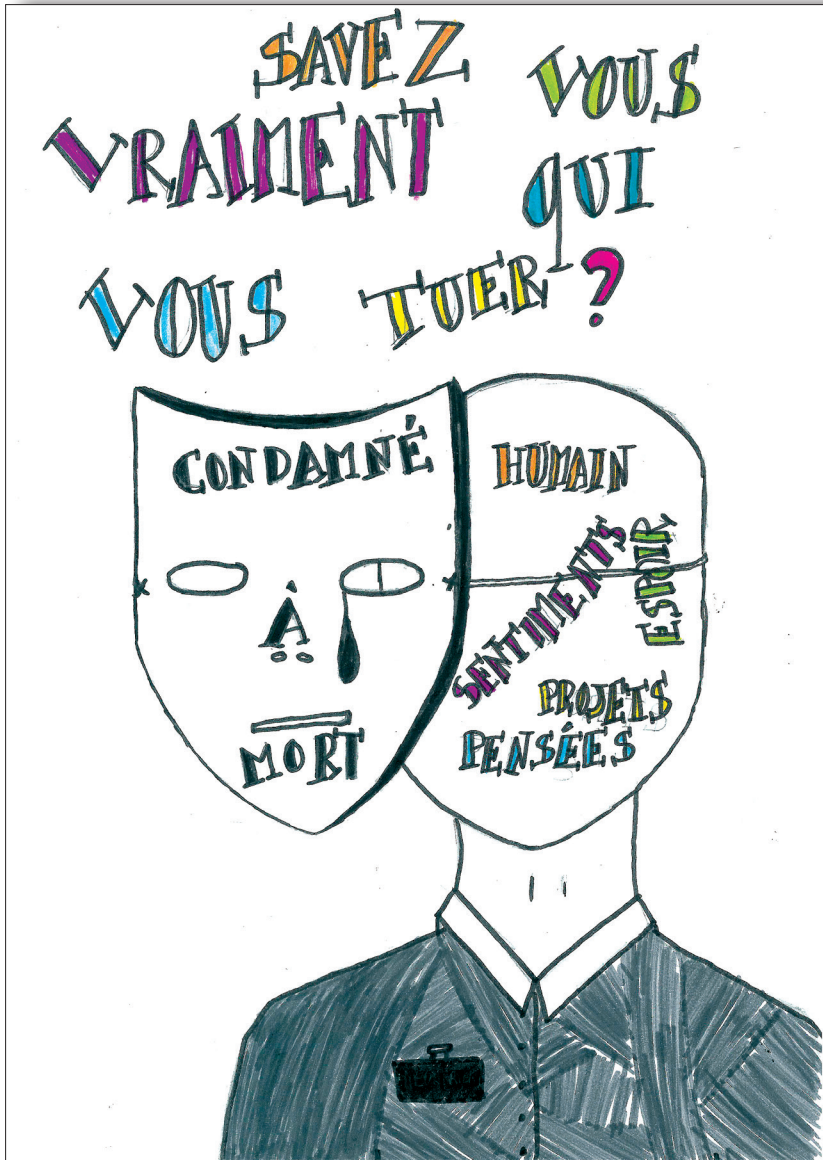 SAVEZ VOUS
VRAIMENT QUI
VOUS TUER ?
CONDAMNÉ
À
MORT
HUMAIN
SENTIMENTS
ESPOIR
PROJETS
PENSÉES